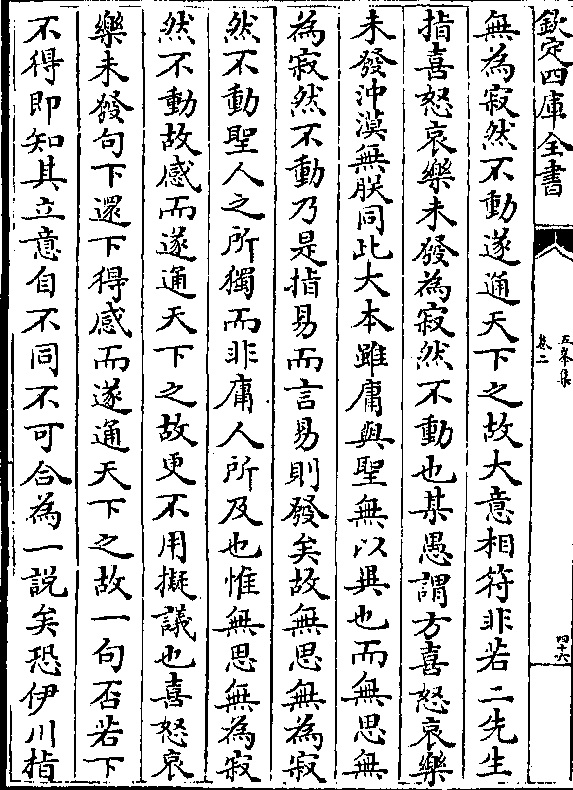 欽定四庫全書
五峯集
卷二
四十六
無為寂然不動遂通天下之故大意相符非若二先生
指喜怒哀樂未發為寂然不動也某愚謂方喜怒哀樂
未發沖漠無朕同此大本雖庸與聖無以異也而無思無
為寂然不動乃是指易而言易則發矣故無思無為寂
然不動聖人之所獨而非庸人所及也惟無思無為寂
然不動故感而遂通天下之故更不用擬議也喜怒哀
樂未發句下還下得感而遂通天下之故一句否若下
不得即知其立意自不同不可合為一說矣恐伊川指